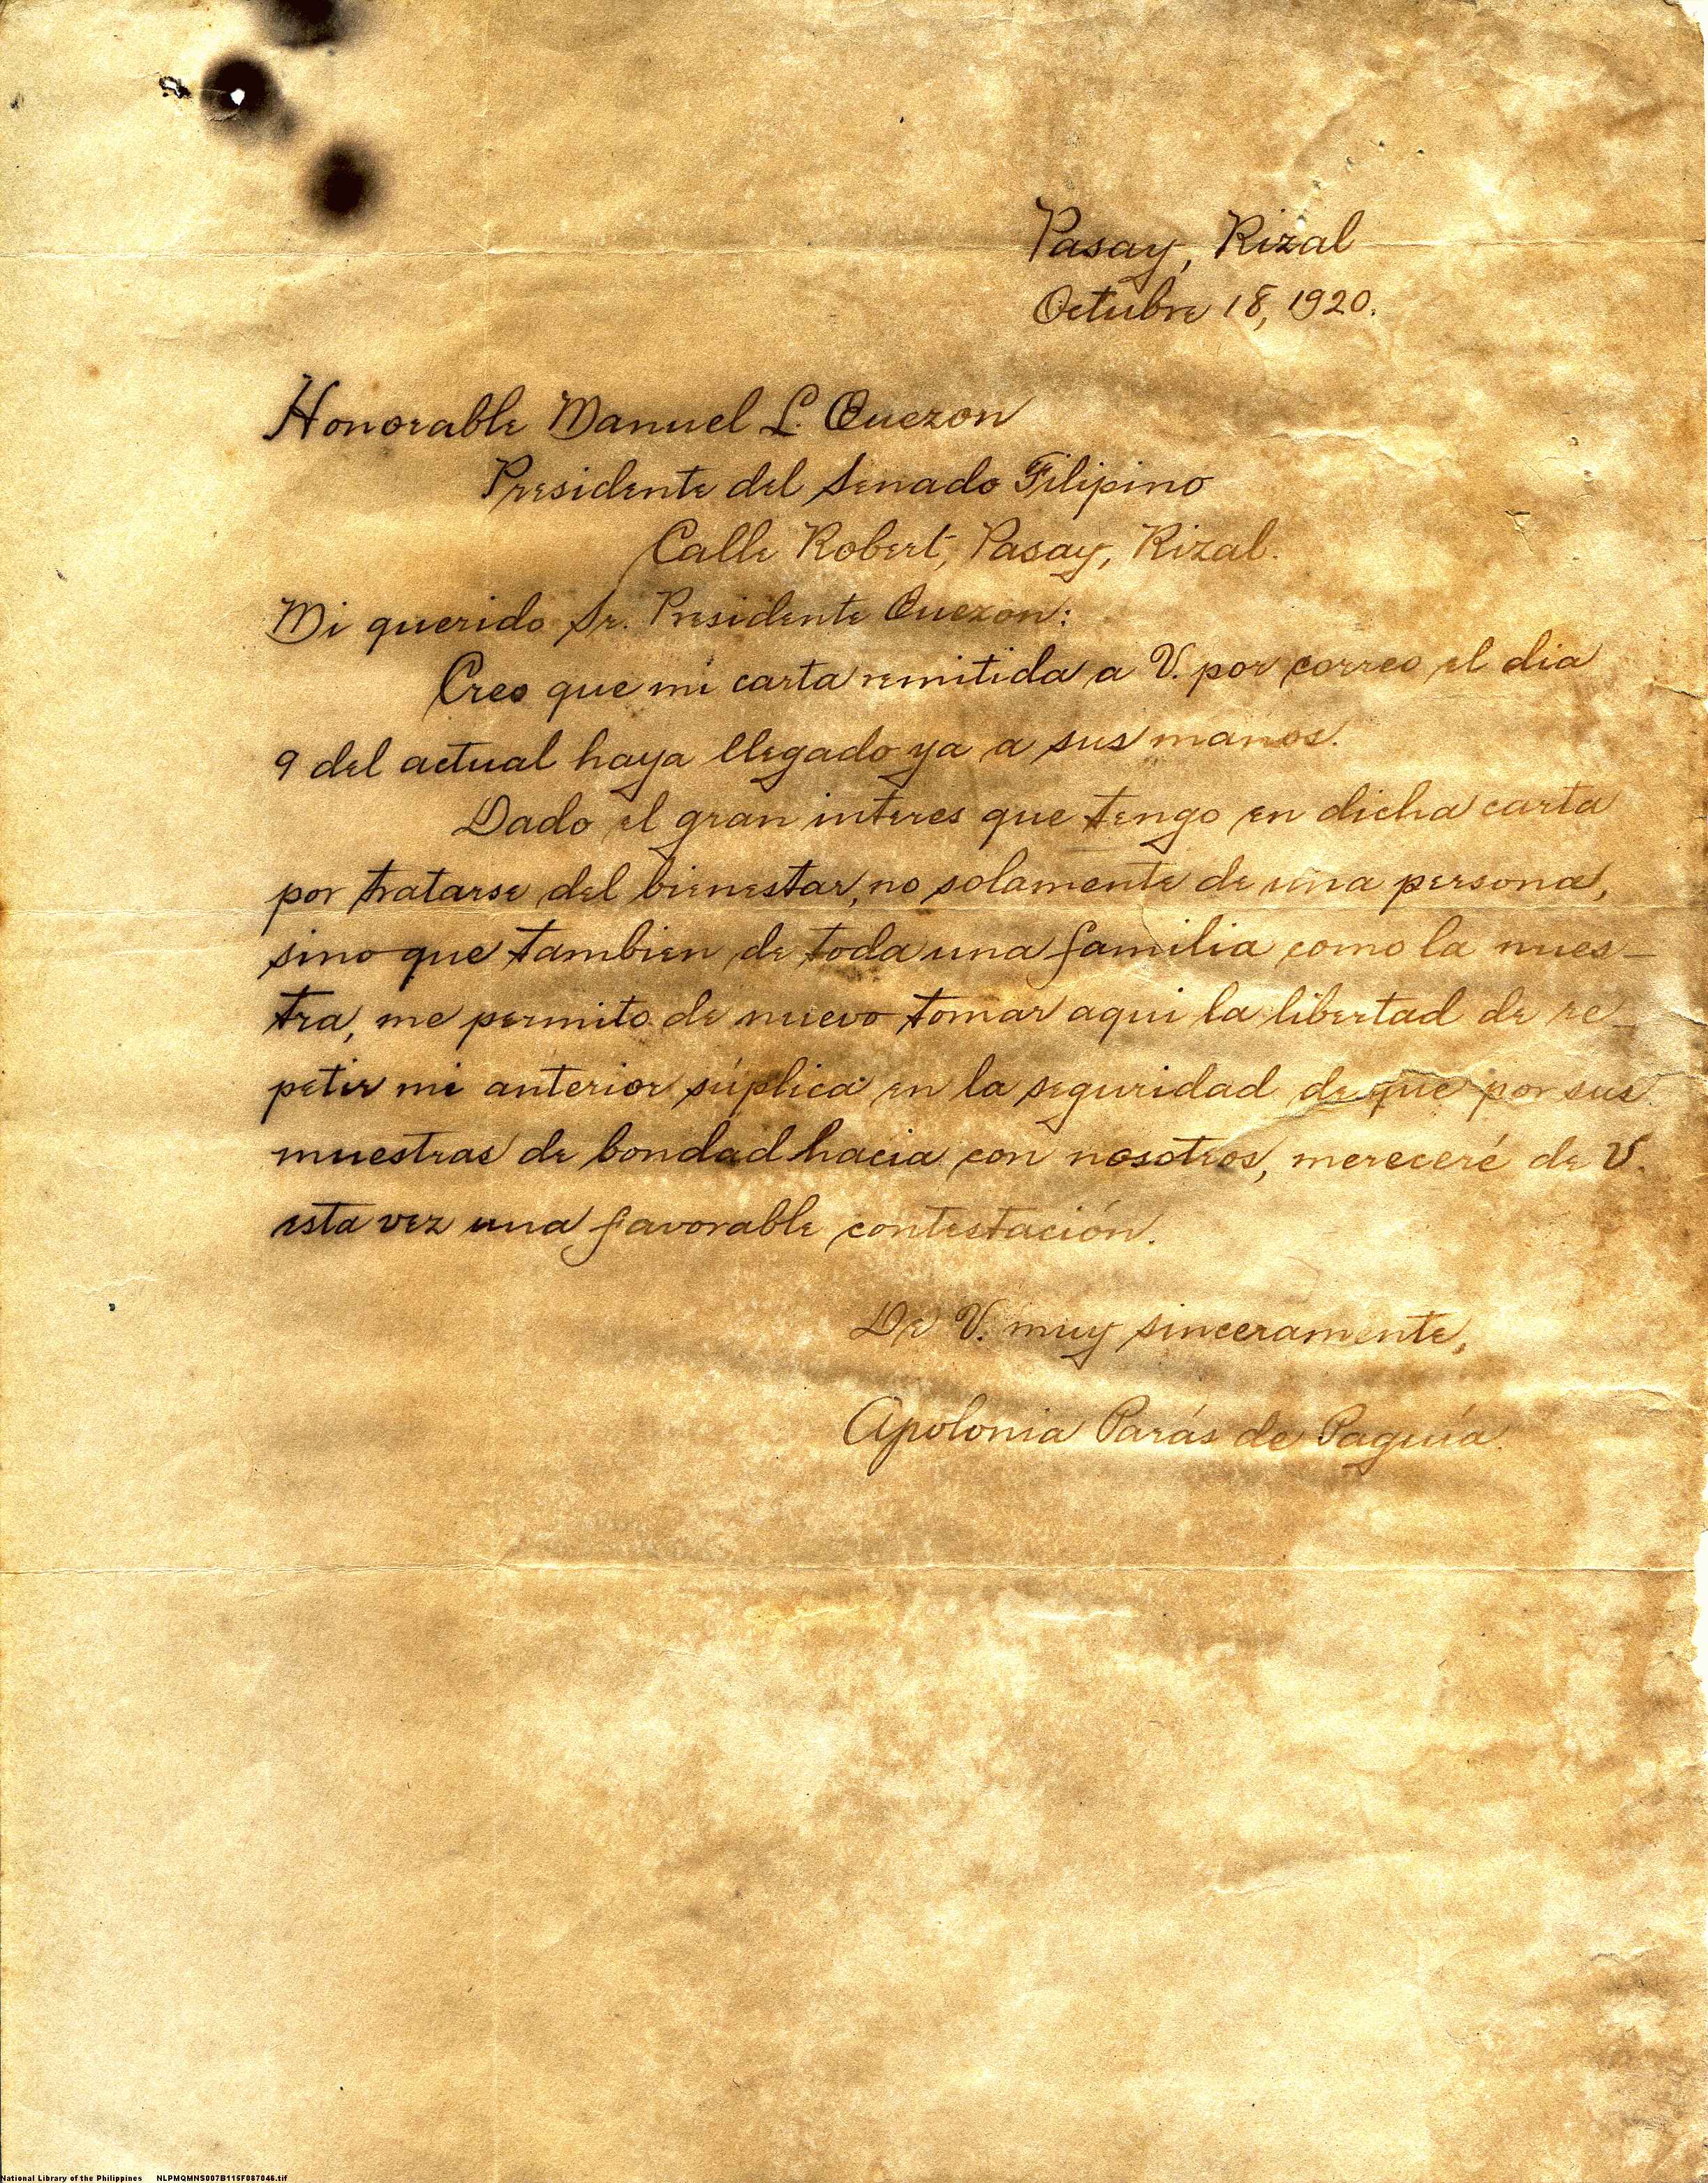 Pasay, Rizal
Octubre 18, 1920.
Honorable Manuel L. Quezon
Presidente del Senado Filipino
Calle Robert, Pasay, Rizal.
Mi querido Sr. Presidente Quezon:
Creo que mi carta remitida a V. por correo el dia
9 del actual haya llegado ya a sus manos.
Dado el gran interes que tengo en dicha carta
por tratarse del bienestar, no solamente de una persona,
sino que tambien de toda una familia como la nues-
tra, me permito de nuevo tomar aqui la libertad de re-
petir mi anterior súplica en la seguridad de que por sus
muestras de bondad hacia con nosotros, mereceré de V.
esta vez una favorable contestación.
De V. muy sinceramente,
Apolonia Parás de Paguía.
National Library of the Philippines NLPMQMNS007B115F087046.tif